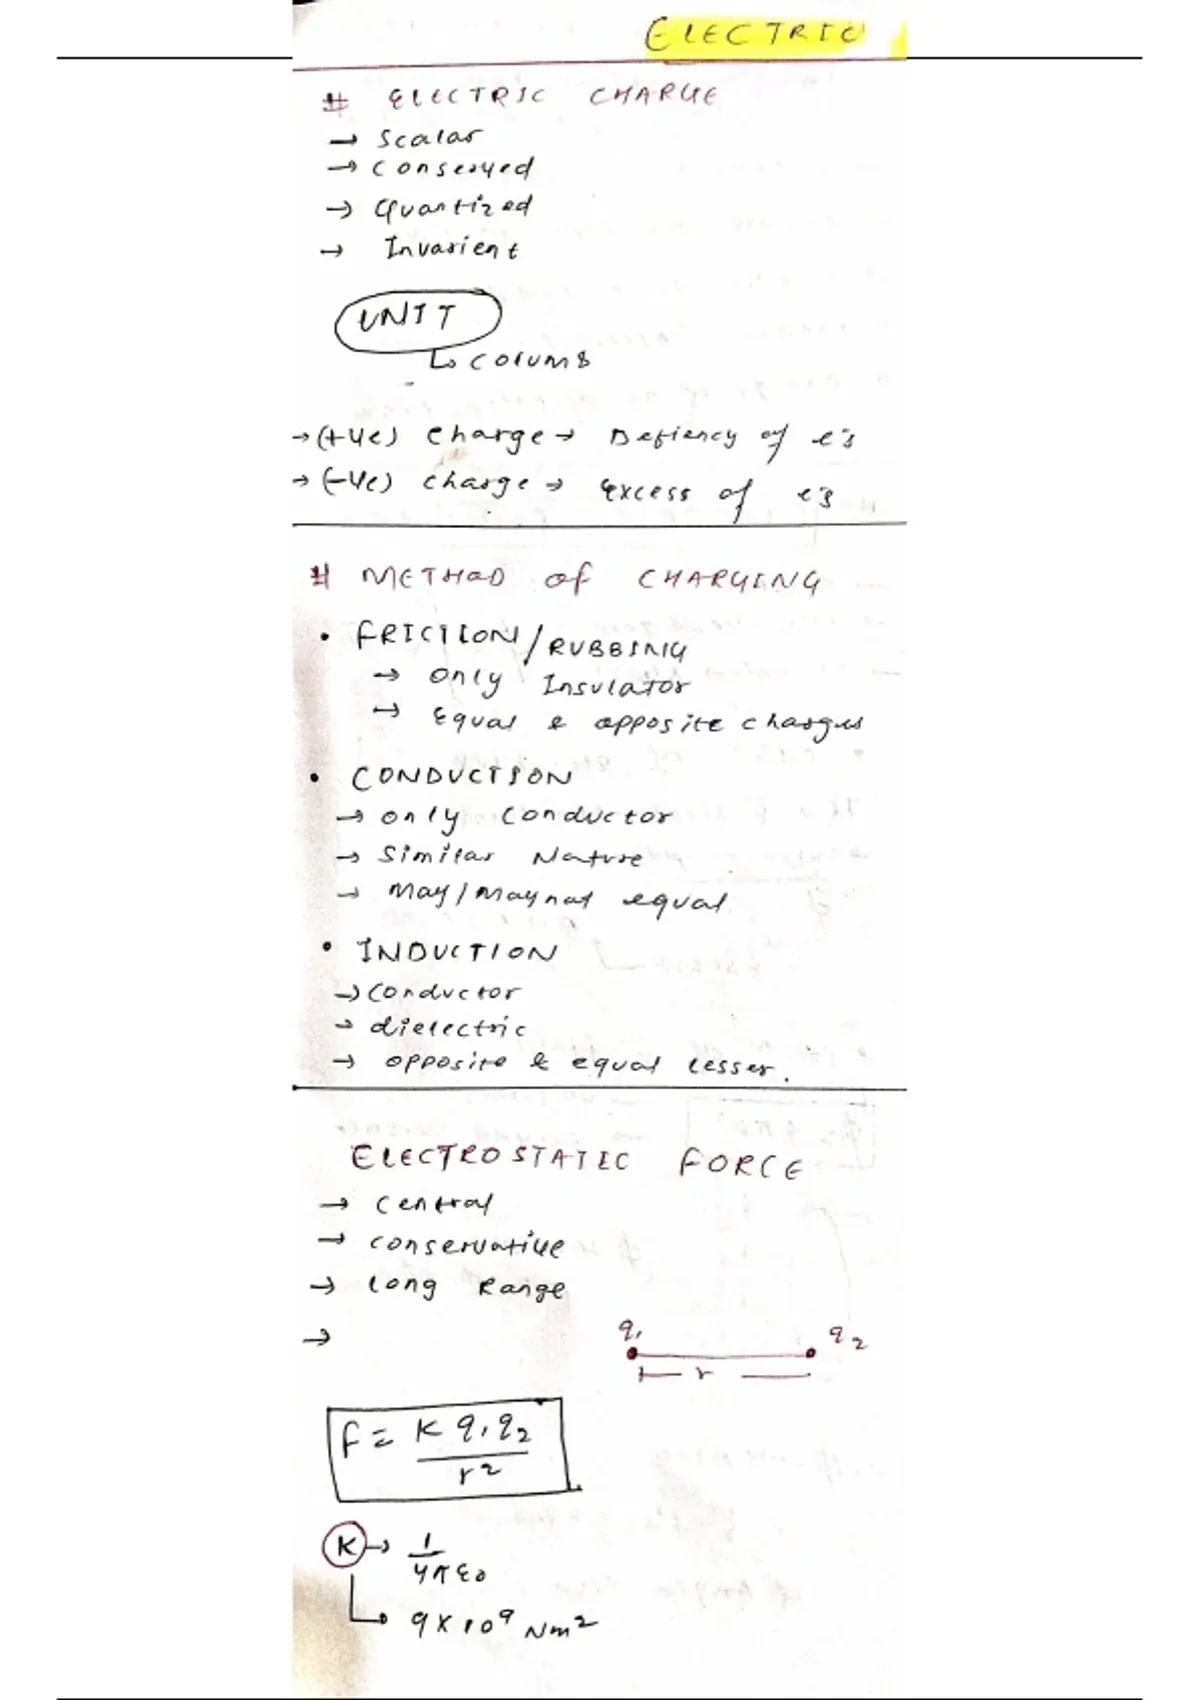 ELECTRIC
# ELECTRIC CHARGE
→ Scalar
→ Conserved
→ Quantized
→ Invarient
UNIT
↳ Colums
→ (+ve) Charge → Defiency of e's
→ (-ve) charge → Excess of e's
# METHOD of CHARGING
• FRICTION / RUBBING
→ Only Insulator
→ Equal & opposite charges
• CONDUCTION
→ only Conductor
→ Similar Nature
→ May / May not equal
• INDUCTION
→ Conductor
→ dielectric
→ opposite & equal lesser.
ELECTROSTATIC FORCE
→ Central
→ conservative
→ long Range
→
q1 q2
r
F = K q1 q2 / r²
K → 1 / 4πε0
↳ 9 × 10⁹ Nm²